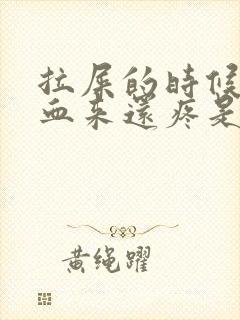 拉屎的時候
血来還疼是
黄绳躍